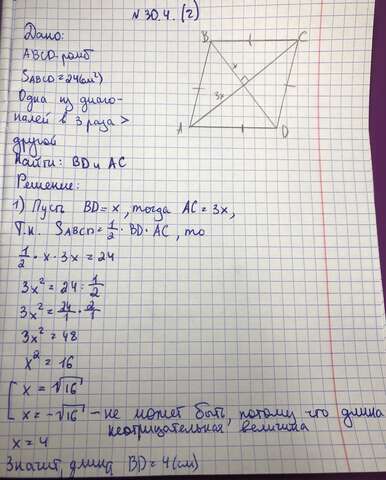 № 30.4. (2)
Дано:
ABCD-ромб
SABCD=24(см²)
Одна из диаго-
налей в 3 раза >
другой
Найти: BD и AC
B C
x
3x
A D
Решение:
1) Пусть BD = x, тогда AC = 3x,
Т.к. SABCD = 1/2 · BD · AC, то
1/2 · x · 3x = 24
3x² = 24 : 1/2
3x² = 24/1 · 2/1
3x² = 48
x² = 16
[ x = √16
x = -√16 - не может быть, потому что длина
неотрицательная величина
x = 4
Значит, длина BD = 4 (см)